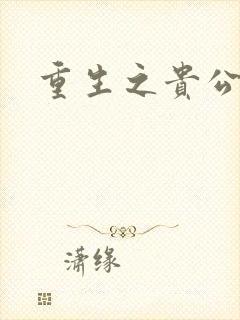 重生之貴公
潇缘